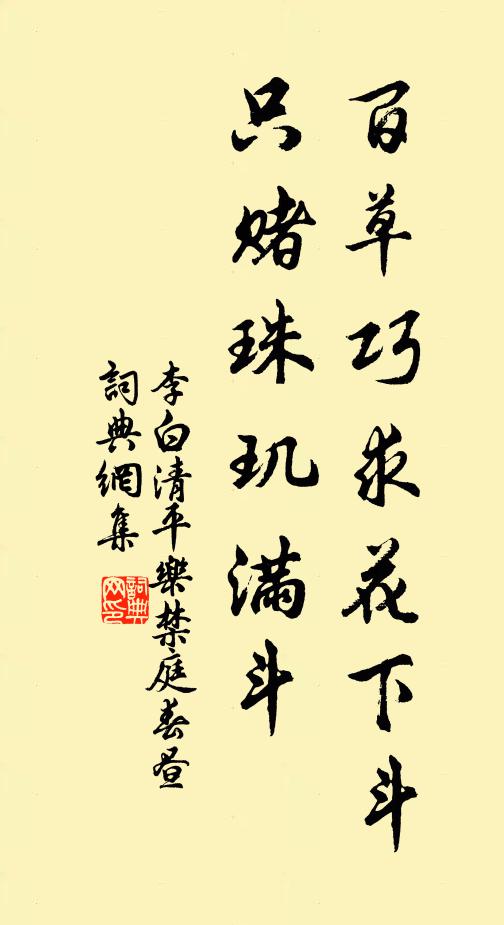 百草巧求花下斗
只赌珠玑满斗
李白清平樂禁庭春昼
詞典網集
詞典网印